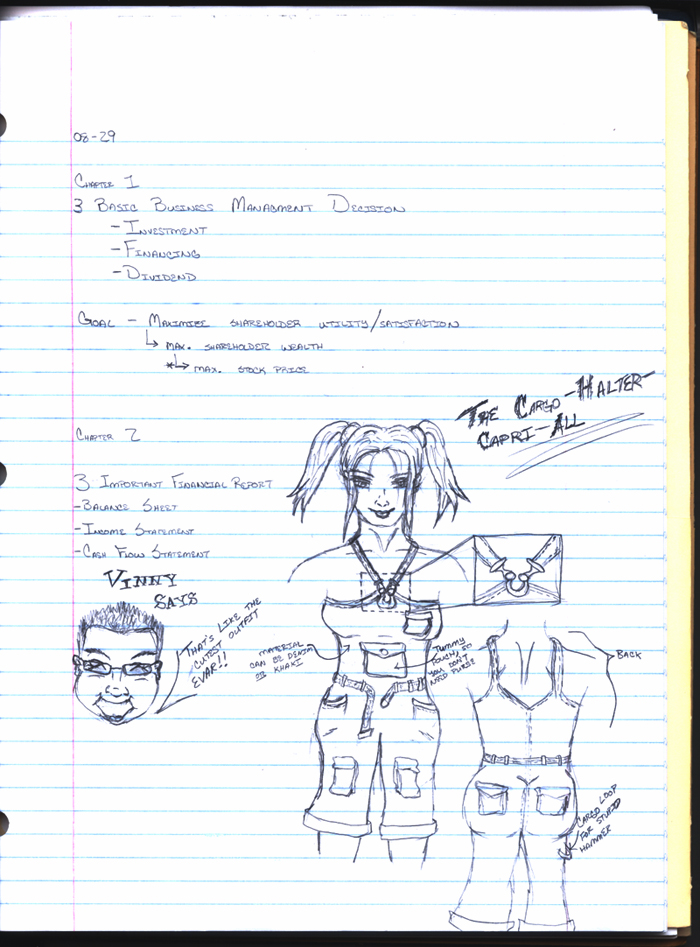 08-29
CHAPTER 1
3 BASIC BUSINESS MANAGMENT DECISION
- INVESTMENT
- FINANCING
- DIVIDEND
GOAL - MAXIMIZE SHAREHOLDER UTILITY/SATISFACTION
↳ MAX. SHAREHOLDER WEALTH
*↳ MAX. STOCK PRICE
THE CARGO-HALTER-
CAPRI-ALL
CHAPTER 2
3 IMPORTANT FINANCIAL REPORT
- BALANCE SHEET
- INCOME STATEMENT
- CASH FLOW STATEMENT
VINNY
SAYS
THAT'S LIKE THE
CUTEST OUTFIT
EVAR!!
MATERIAL
CAN BE DENIM
OR KHAKI
TUMMY
POUCH, SO
YOU DON'T
NEED PURSE
BACK
CARGO LOOP
FOR STUPID
HAMMER